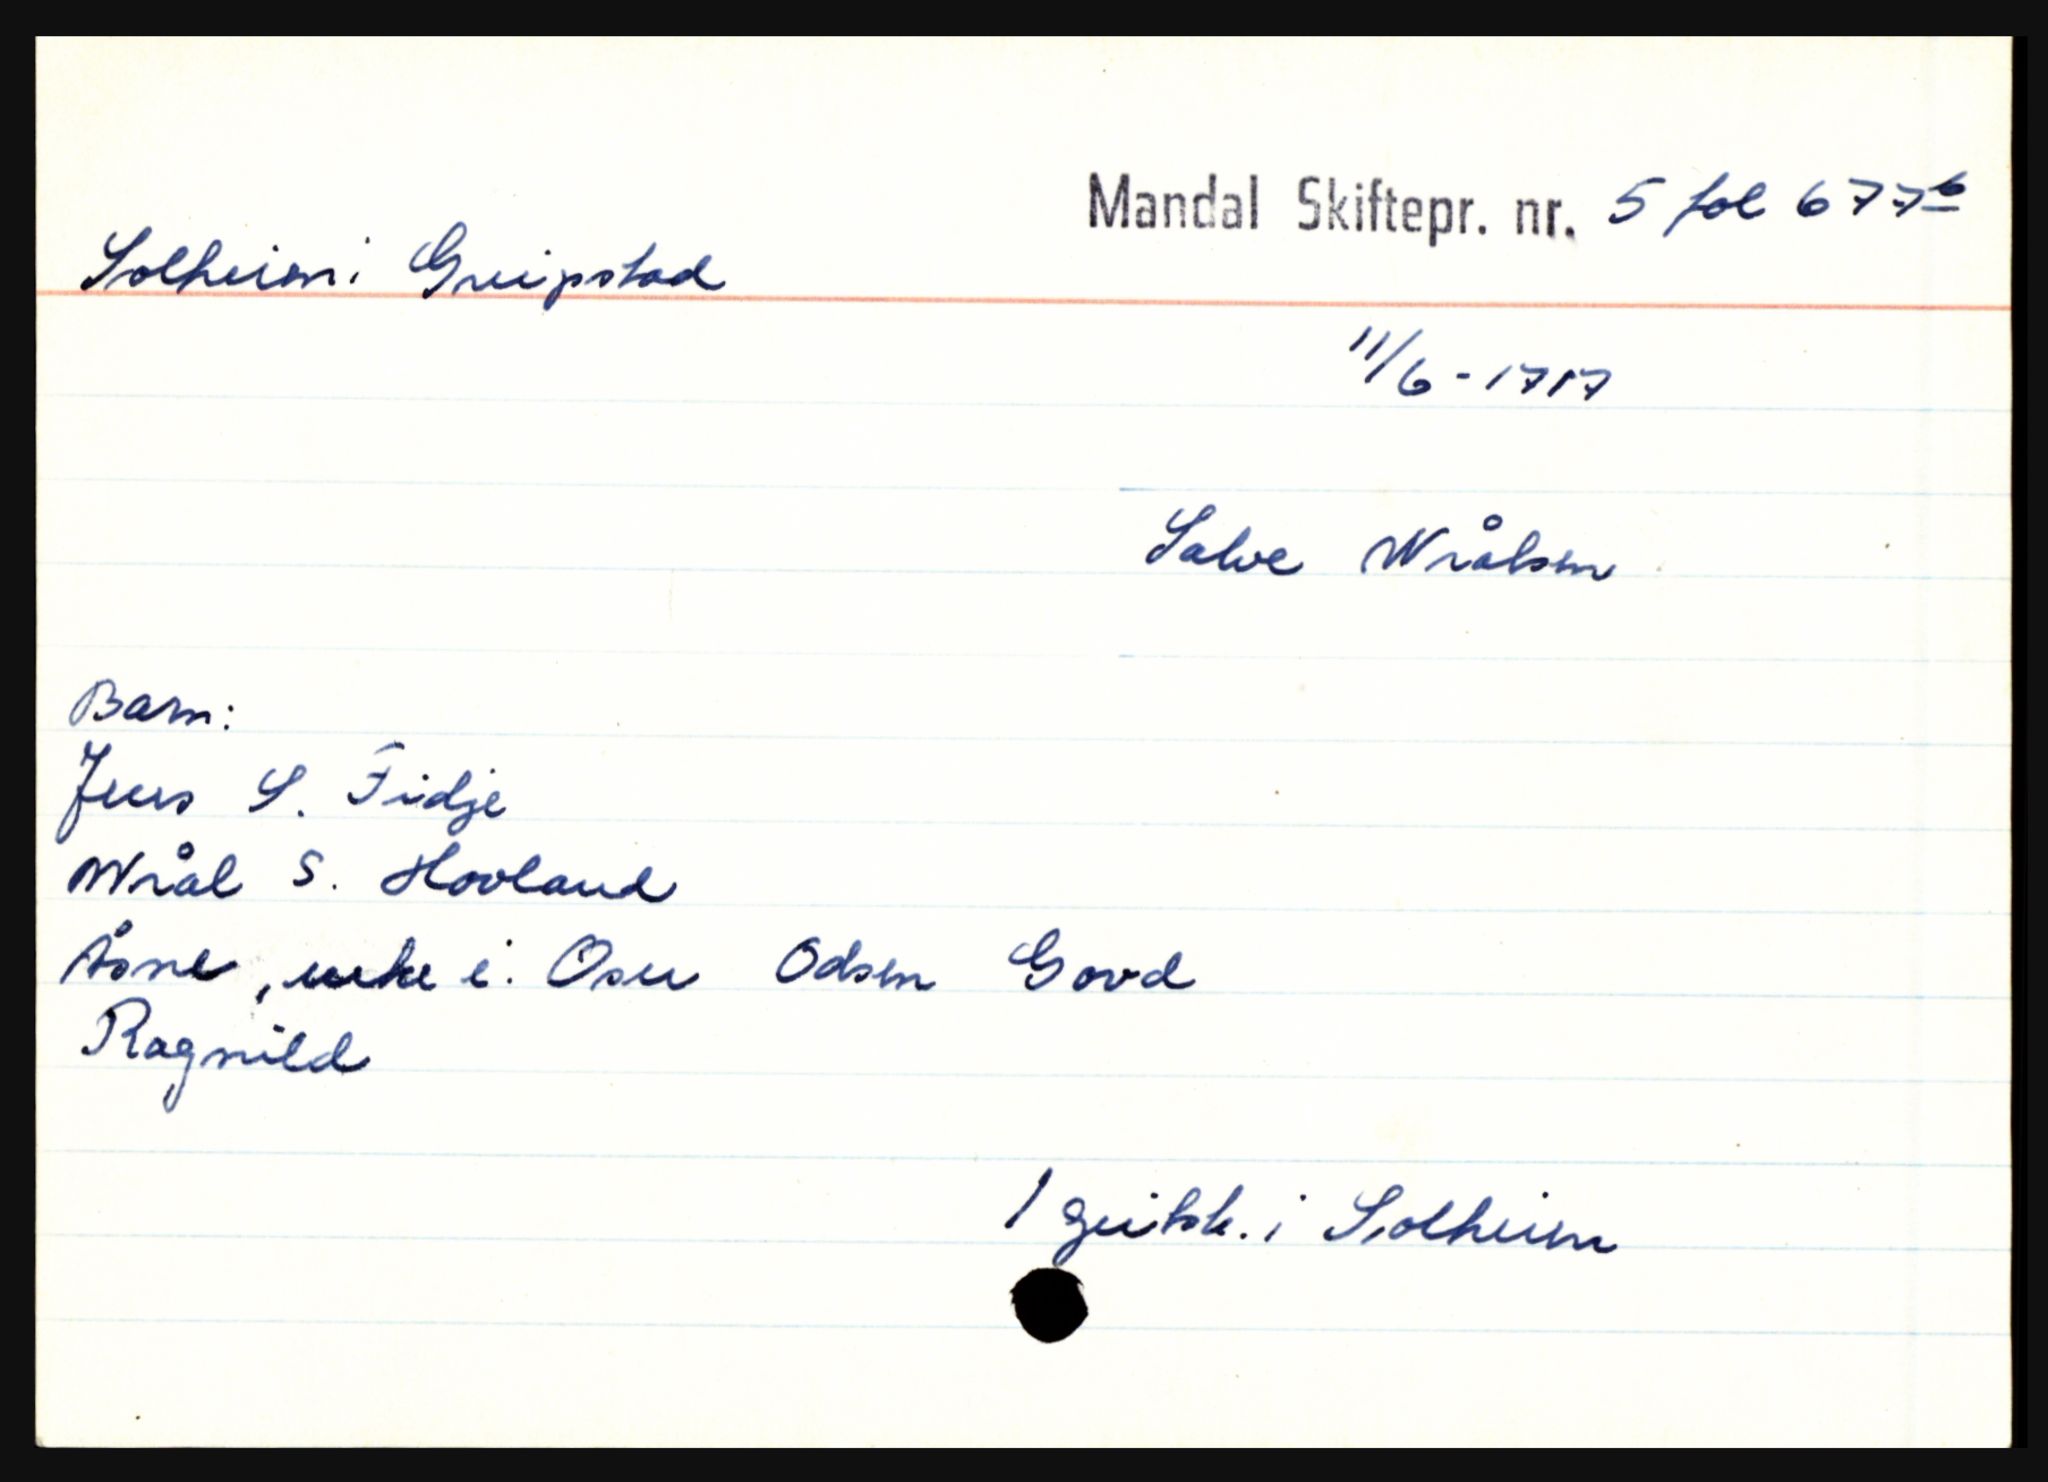 Mandal Skiftepr. nr. 5 fol 677b
Solheim i Greipstad
11/6 - 1717
Salve Wrålsen
Barn:
Jens S. Fidje
Wrål S. Hovland
Åsne, enke e. Osu Odsen Govd
Ragnild
1 geitsk. i Solheim